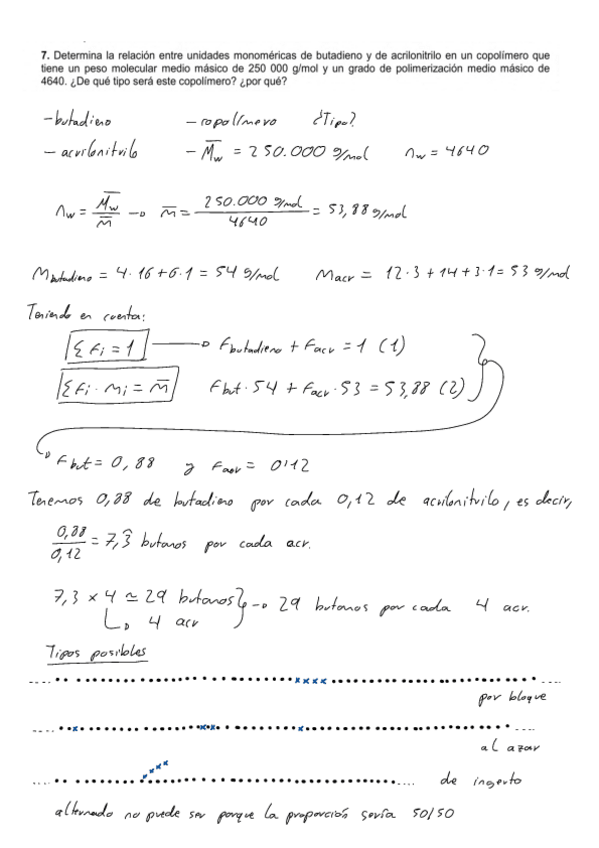 7. Determina la relación entre unidades monoméricas de butadieno y de acrilonitrilo en un copolímero que
tiene un peso molecular medio másico de 250 000 g/mol y un grado de polimerización medio másico de
4640. ¿De qué tipo será este copolímero? ¿por qué?
-butadieno - copolímero ¿Tipo?
- acrilonitrilo - M̅w = 250.000 g/mol nw = 4640
nw = M̅w / m̅ → m̅ = 250.000 g/mol / 4640 = 53,88 g/mol
Mbutadieno = 4·16+6·1 = 54 g/mol Macr = 12·3+14+3·1 = 53 g/mol
Teniendo en cuenta:
Σ Fi = 1 → Fbutadieno + Facr = 1 (1)
Σ Fi · mi = m̅ Fbut · 54 + Facr · 53 = 53,88 (2)
Fbut = 0,88 y Facr = 0'12
Tenemos 0,88 de butadieno por cada 0,12 de acrilonitrilo, es decir,
0,88 / 0,12 = 7,3̂ butanos por cada acr.
7,3 × 4 ≃ 29 butanos → 29 butanos por cada 4 acr.
4 acr
Tipos posibles
por bloque
al azar
de ingerto
alternado no puede ser porque la proporción sería 50/50